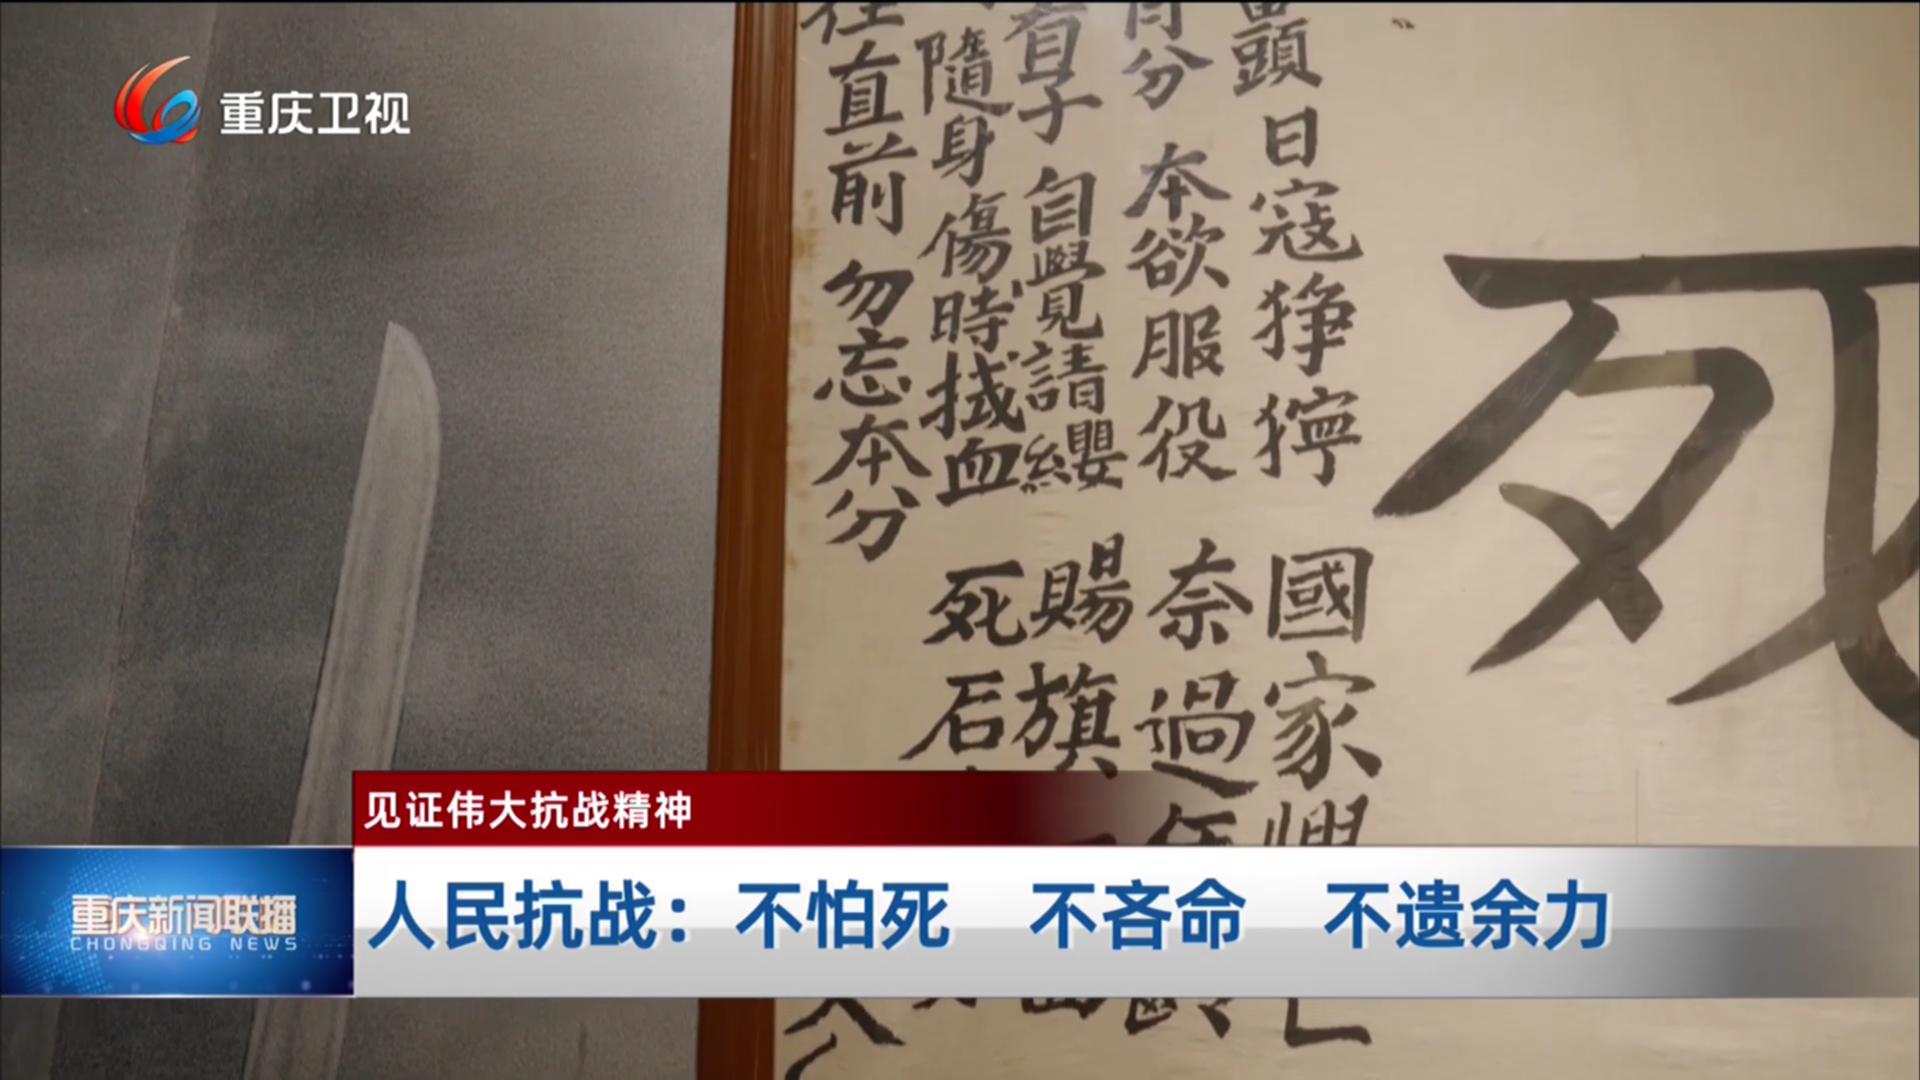 重庆卫视
死
頭 日寇猙獰 國家興亡
肯分 本欲服役 奈過年齡
有子 自覺請纓 賜旗
隨身 傷時拭血 死后
往直前 勿忘本分
见证伟大抗战精神
人民抗战：不怕死 不吝命 不遗余力
重庆新闻联播
CHONGQING NEWS